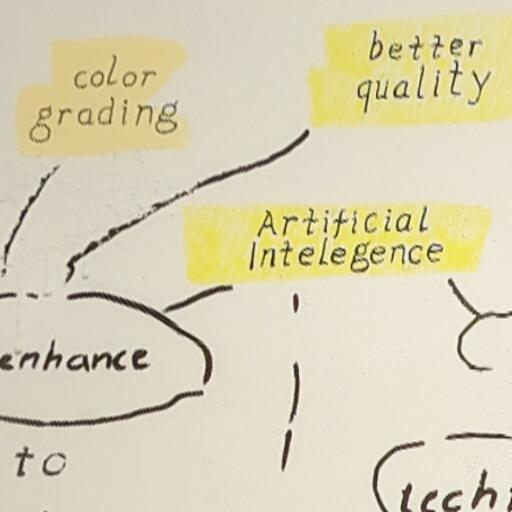 color
grading
better
quality
Artificial
Intelegence
enhance
to